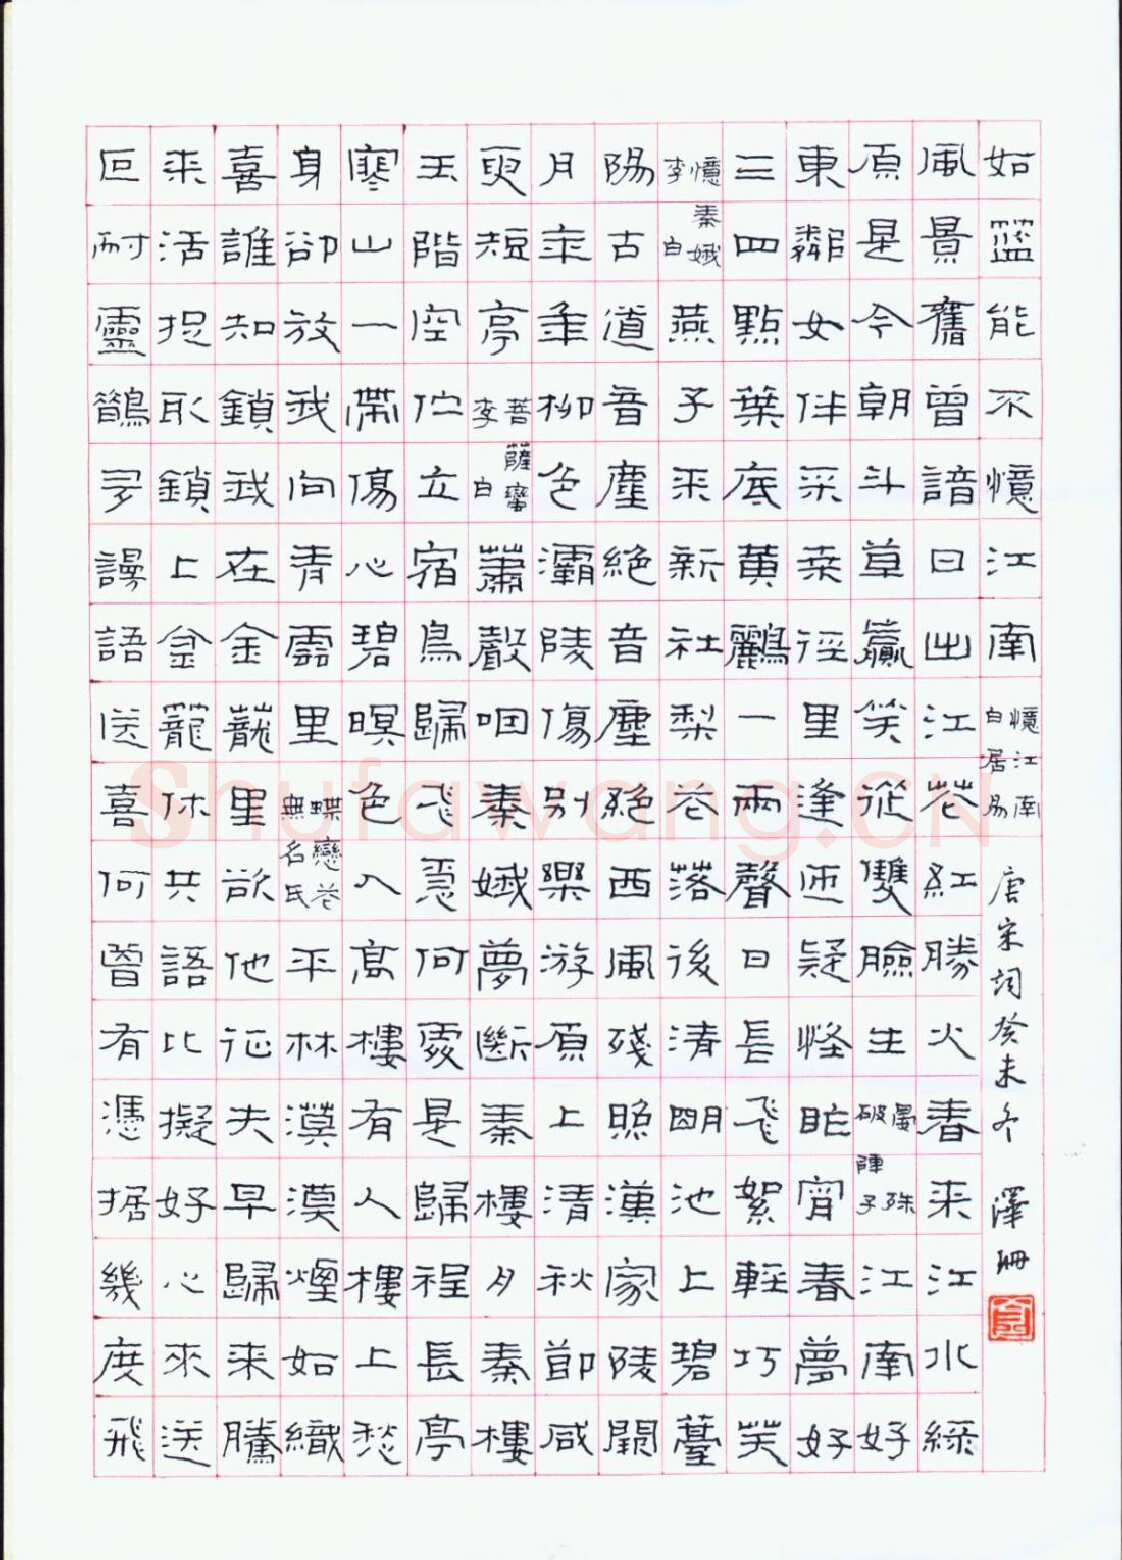 叵耐靈鵲多謾語送喜何曾有憑據幾度飛
来活捉取鎖上金籠休共語比擬好心來送
喜誰知鎖我在金籠里欲他征夫早歸来騰
身卻放我向青雲里蝶戀花無名氏平林漠漠煙如織
寒山一帶傷心碧暝色入高樓有人樓上愁
玉階空佇立宿鳥歸飛急何處是歸程長亭
更短亭菩薩蠻李白簫聲咽秦娥夢斷秦樓月秦樓
月年年柳色灞陵傷別樂游原上清秋節咸
陽古道音塵絕音塵絕西風殘照漢家陵闕
憶秦娥李白燕子来新社梨花落後清明池上碧薹
三四點葉底黃鸝一兩聲日長飛絮輕巧笑
東鄰女伴采桑徑里逢迎疑怪昨宵春夢好
原是今朝斗草贏笑從雙臉生破陣子晏殊江南好
風景舊曾諳日出江花紅勝火春来江水綠
如籃能不憶江南憶江南白居易唐宋詞癸未冬 澤册
Shufawang.CN